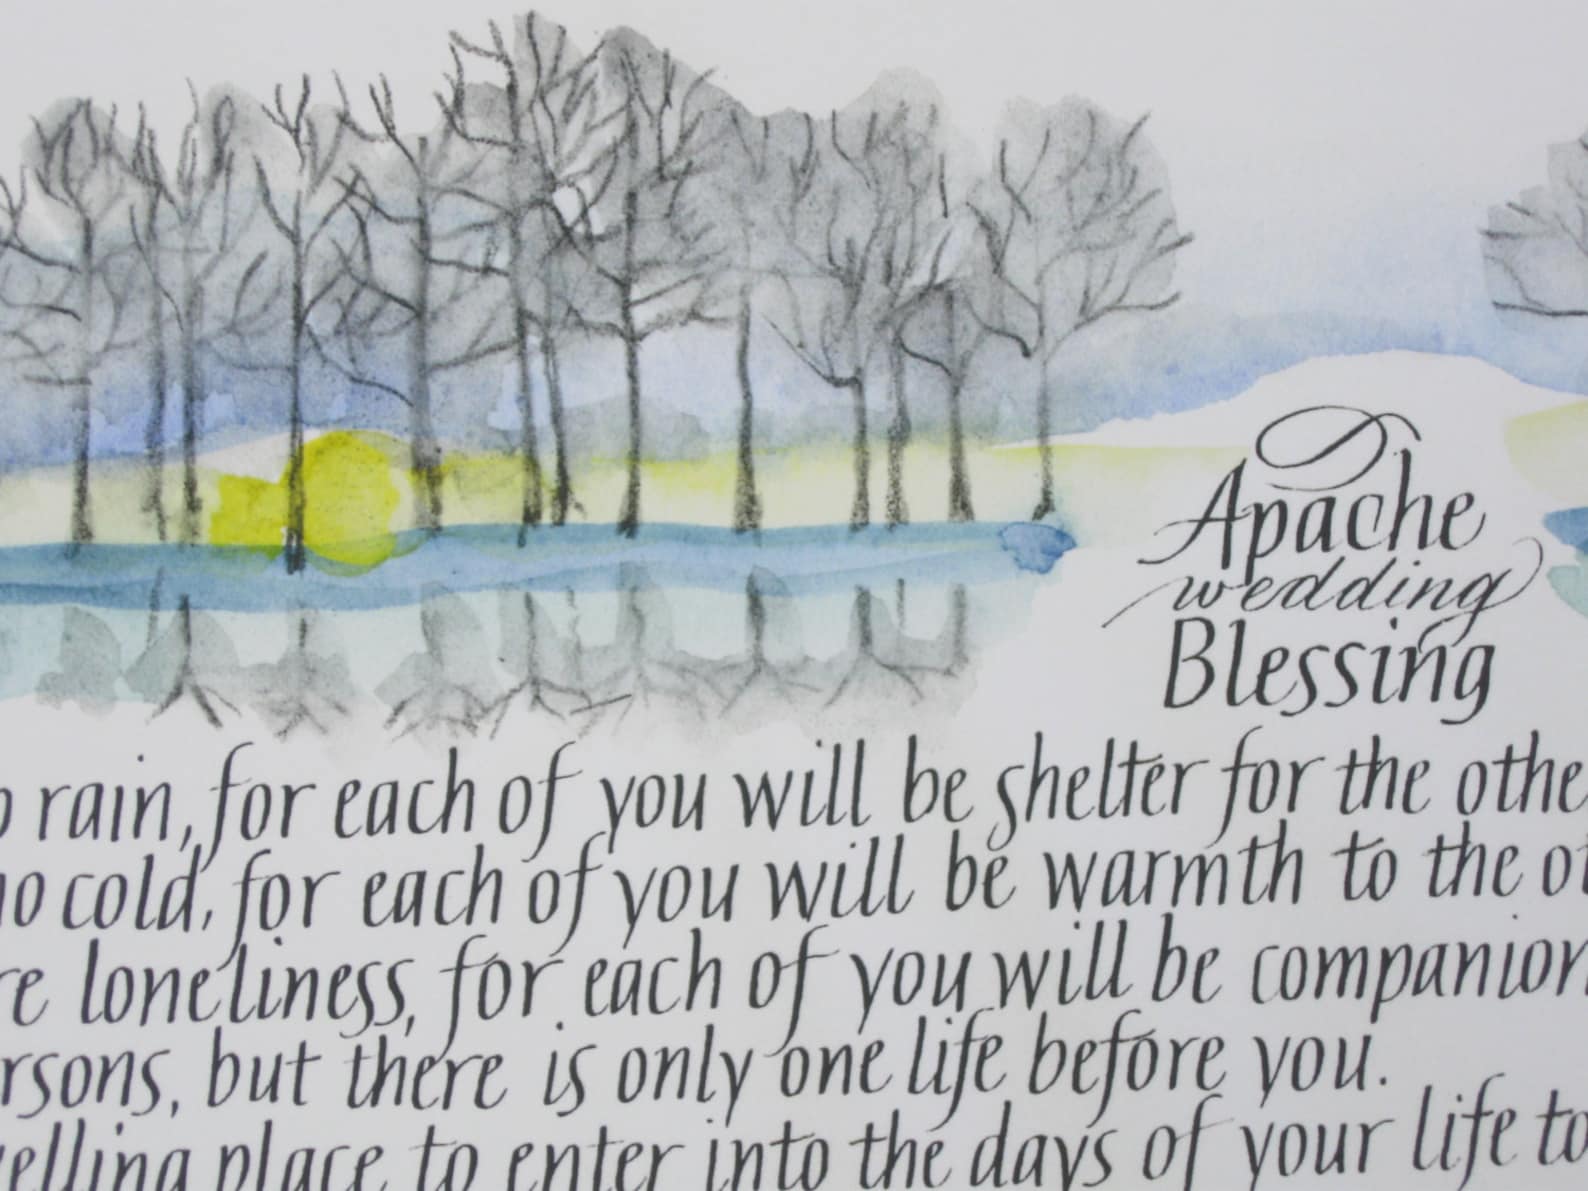 Apache
wedding
Blessing
rain, for each of you will be shelter for the othe
no cold, for each of you will be warmth to the ot
re loneliness, for each of you will be companion
rsons, but there is only one life before you.
elling place to enter into the days of your life to